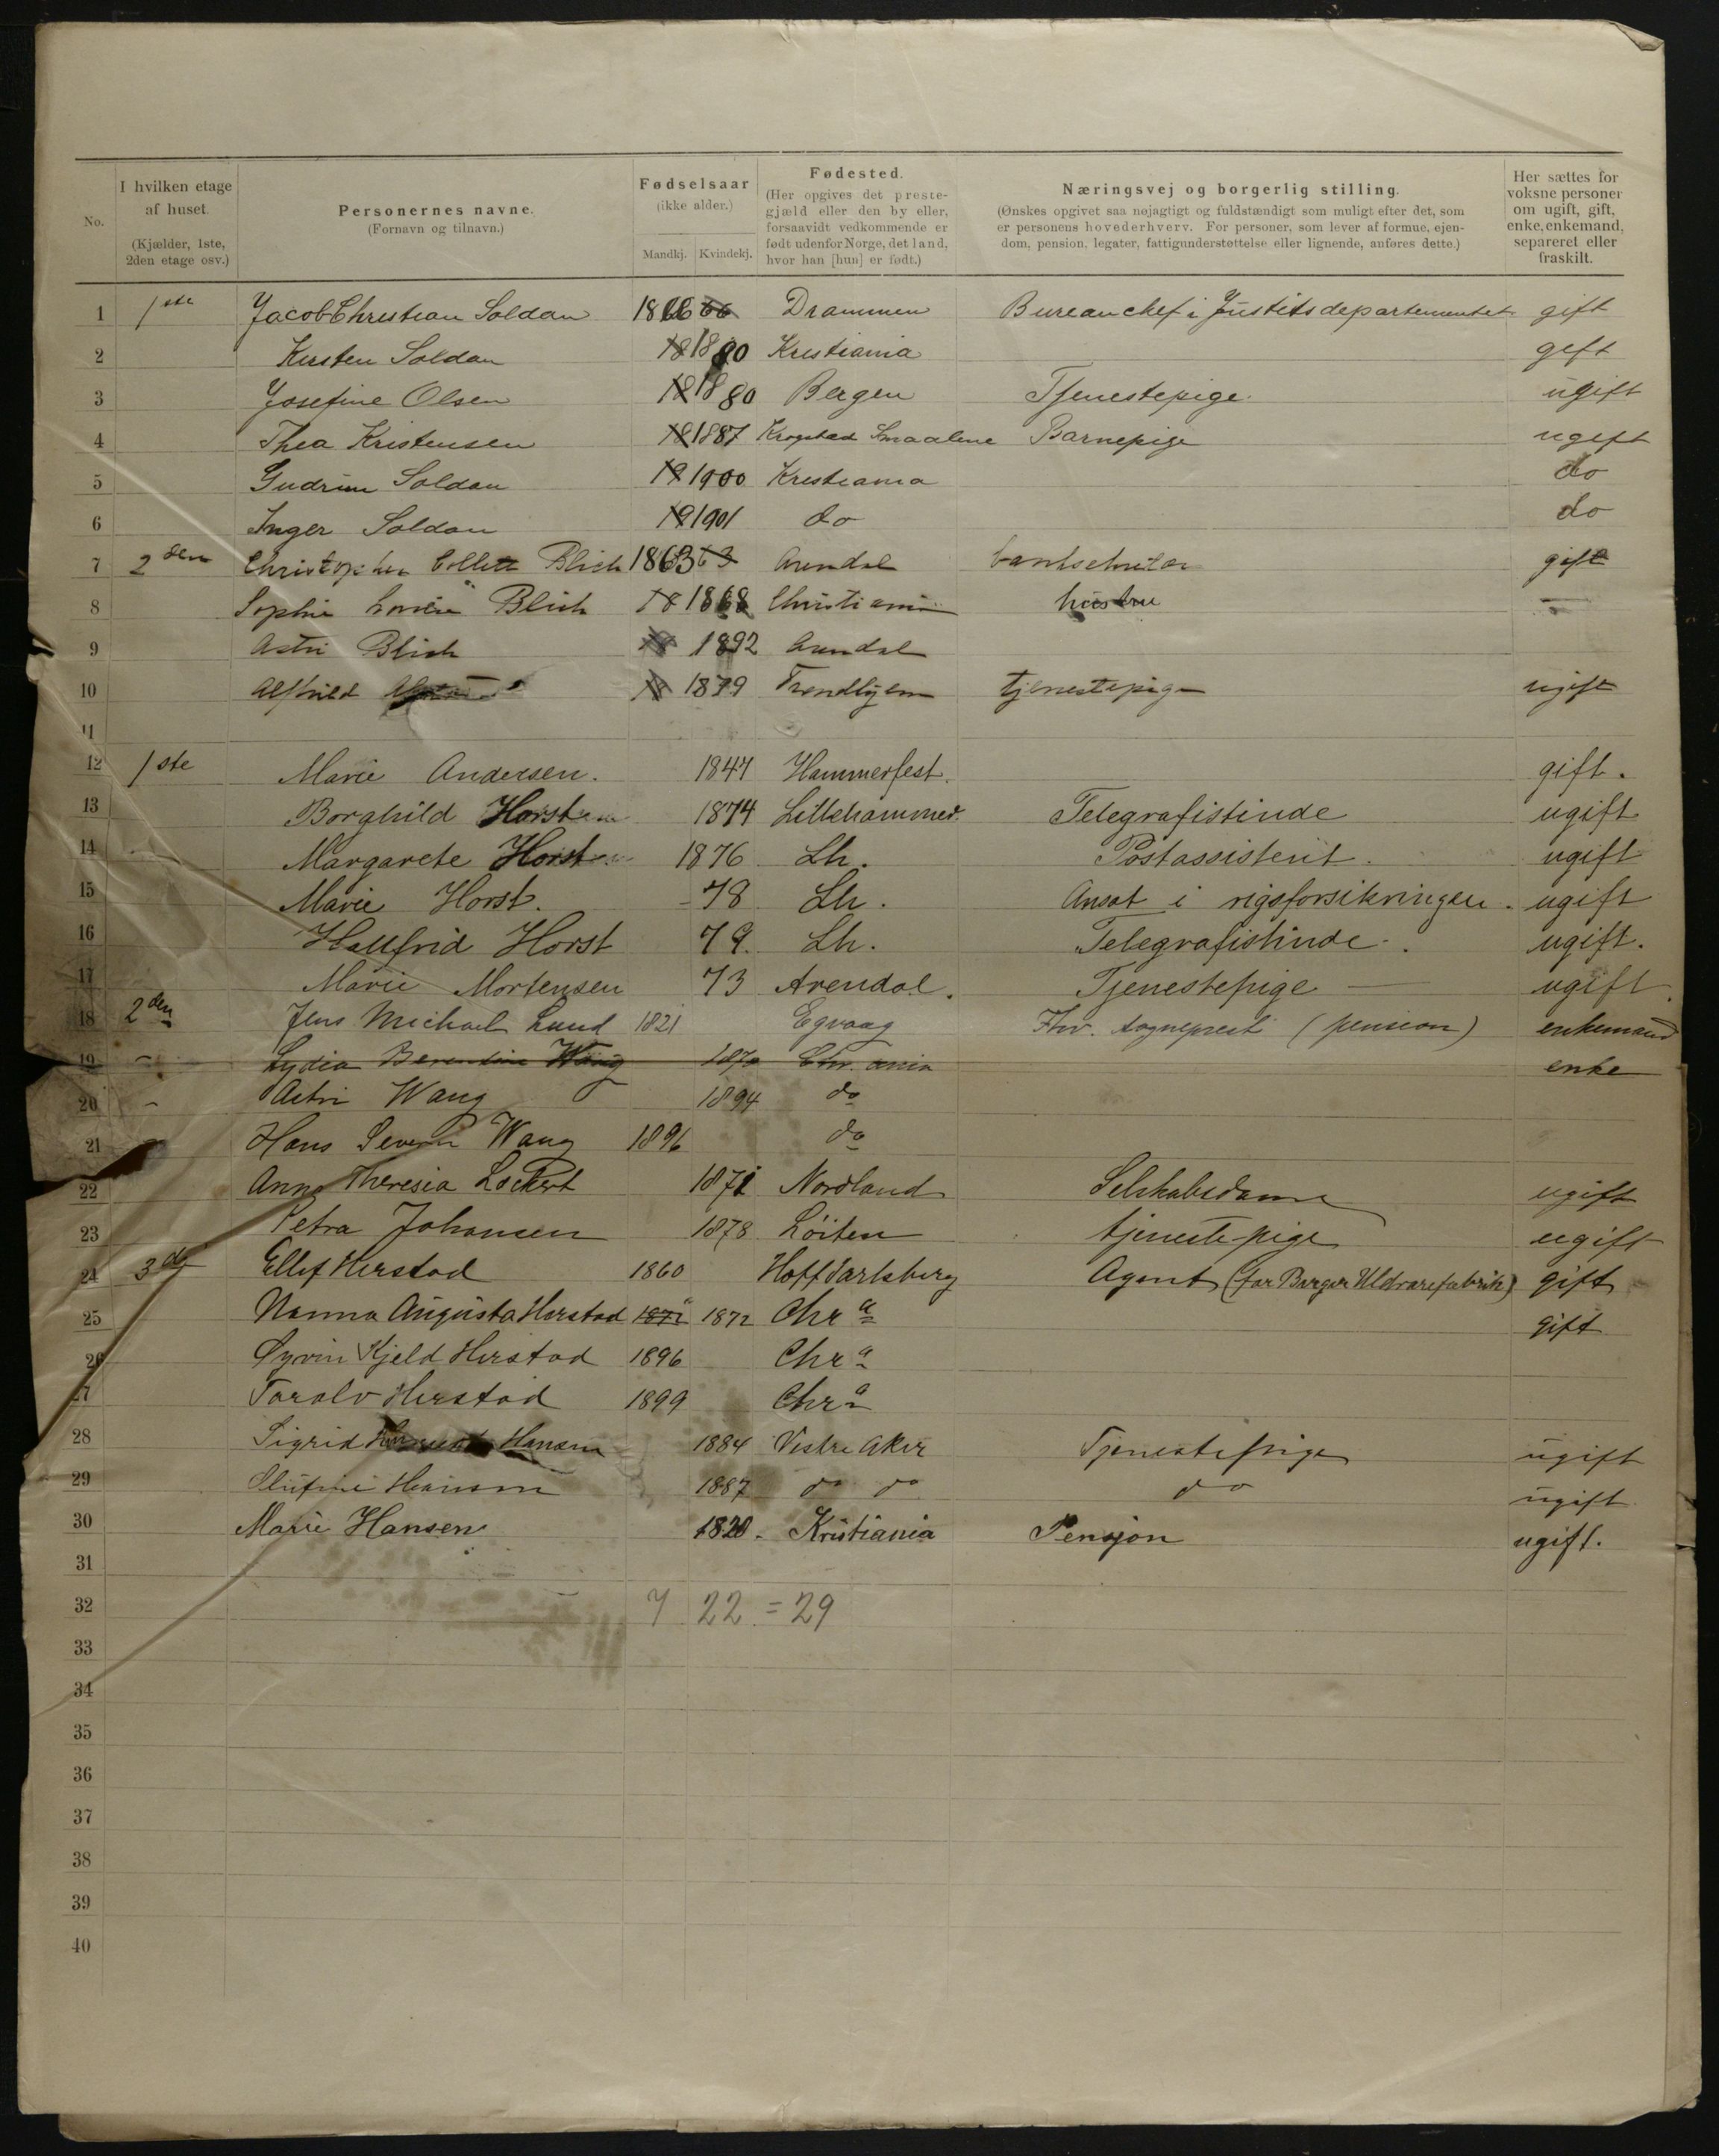 No. I hvilken etage af huset. (Kjælder, 1ste, 2den etage osv.) Personernes navne. (Fornavn og tilnavn.) Fødselsaar (ikke alder.) Mandkj. Kvindekj. Fødested. (Her opgives det prestegjæld eller den by eller, forsaavidt vedkommende er født udenfor Norge, det land, hvor han [hun] er født.) Næringsvej og borgerlig stilling. (Ønskes opgivet saa nøjagtigt og fuldstændigt som muligt efter det, som er personens hovederhverv. For personer, som lever af formue, ejendom, pension, legater, fattigunderstøttelse eller lignende, anføres dette.) Her sættes for voksne personer om ugift, gift, enke, enkemand, separeret eller fraskilt.
1 1ste Jacob Christian Soldan 1866 Drammen Bureauchef i Justitsdepartementet gift
2 Kirsten Soldan 1880 Kristiania gift
3 Josefine Olsen 1880 Bergen Tjenestepige ugift
4 Thea Kristensen 1887 Krogstad Smaalene Barnepige ugift
5 Gudrun Soldan 1900 Kristiania do
6 Inger Soldan 1901 do do
7 2den Christopher Collett Blich 1863 Arendal gift
8 Sophie Blich 1868 Christiania hustru —
9 Astri Blich 1892 Arendal
10 Alfhild 1879 Trondhjem tjenestepige ugift
11
12 1ste Marie Andersen. 1847 Hammerfest. gift.
13 Borghild Horst 1874 Lillehammer. Telegrafistinde ugift
14 Margarete Horst 1876 Lh. Postassistent. ugift
15 Marie Horst. -78 Lh. Ansat i rigsforsikringen. ugift
16 Hallfrid Horst 79. Lh. Telegrafistinde. ugift.
17 Marie Mortensen 73 Arendal. Tjenestepige — ugift.
18 2den Jens Michael Lund 1821 Egvaag Fhv. sogneprest (pension) enkemand
19 - Lydia Berentine Wang 1870 Chr.ania enke
20 - Astri Wang 1894 do
21 Hans Severin Wang 1896 do
22 Anna Theresia Lockert 1871 Nordland Selskabsdame ugift
23 Petra Johansen 1878 Löiten tjenestepige ugift
24 3de Ellef Herstad 1860 Hoff Jarlsberg Agent (for Berger Uldvarefabrik) gift
25 Nanna Augusta Herstad 1872 1872 Chra gift
26 Øyvin Kjeld Herstad 1896 Chra
27 Taralv Herstad 1899 Chra
28 Sigrid Hansen 1884 Vestre Aker Tjenestepige ugift
29 Olufine Hansen 1887 do do do ugift
30 Marie Hansen 1820. Kristiania Pensjon ugift.
31
32 7 22 = 29
33
34
35
36
37
38
39
40